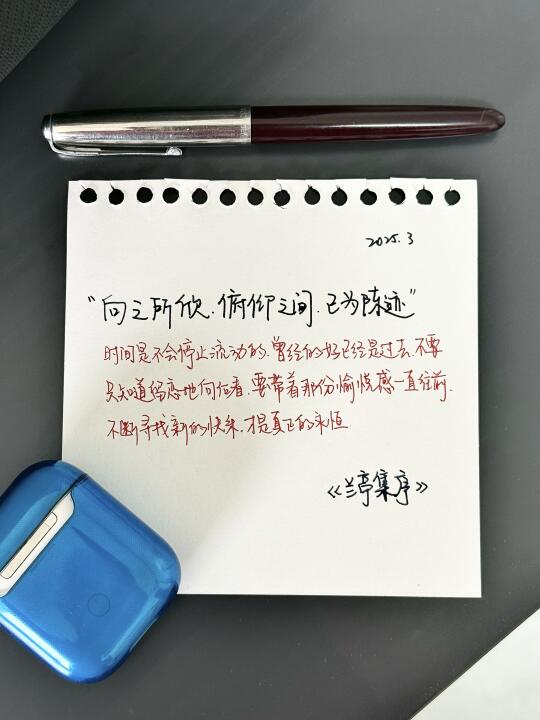 2025.3
“向之所欣.俯仰之间.已为陈迹”
时间是不会停止流动的.曾经的好已经是过去.不要
只知道留恋地向后看.要带着那份愉悦感一直往前.
不断寻找新的快乐.才是真正的永恒.
《兰亭集序》